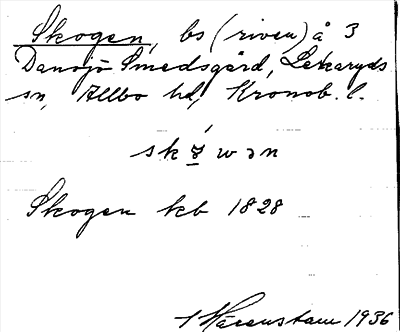 Skogen, bs (riven) å 3
Dansjö Smedsgård, Lekaryds
sn, Allbo hd, Kronob. l.
skɷ́wən
Skogen kb 1828
Härenstam 1936